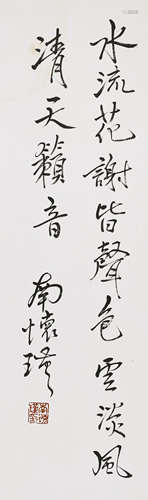 水流花謝皆聲色雲淡風
清天籟音
南懷瑾